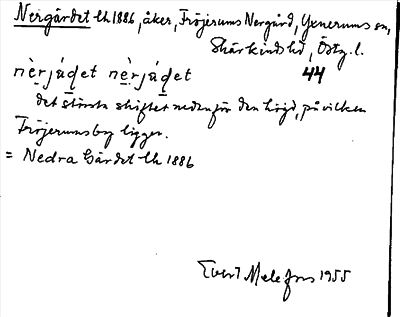 Nergärdet lh 1886, åker, Fröjerums Nergård, Yxnerums sn,
Skärkinds hd, Östg. l.
nèrjáḍet nèrjáḍet 44
det största skiftet nedanför den höjd, på vilken
Fröjerums by ligger.
= Nedra Gärdet lh 1886
Evert Melefors 1955